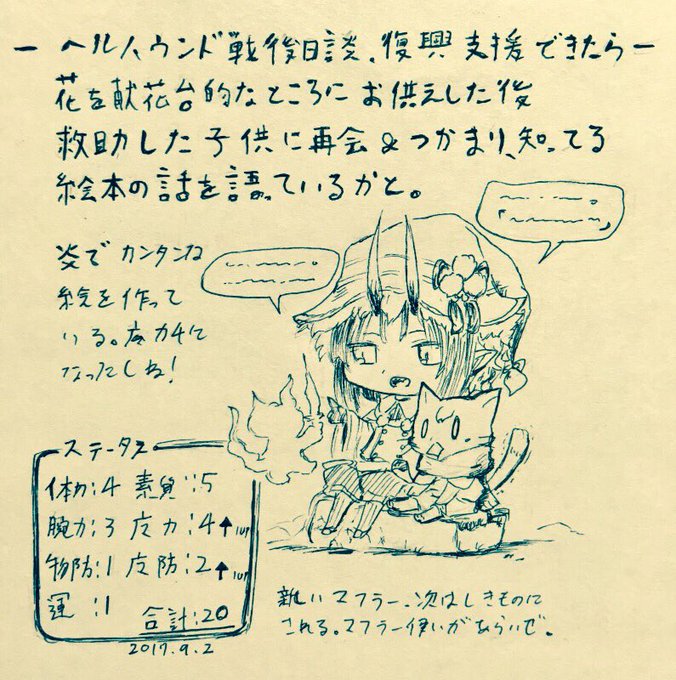 ー ヘルハウンド戦後日談、復興支援できたらー
花を献花台的なところにお供えした後
救助した子供に再会&つかまり、知ってる
絵本の話を語っているかと。
炎でカンタンな
絵を作って
いる。魔力4に
なったしね!
ステータス
体力:4 素質:5
腕力:3 魔力:4↑1up
物防:1 魔防:2↑1up
運:1 合計:20
2017.9.2
新しいマフラー、次はしきものに
される。マフラー使いがあらいぜ。